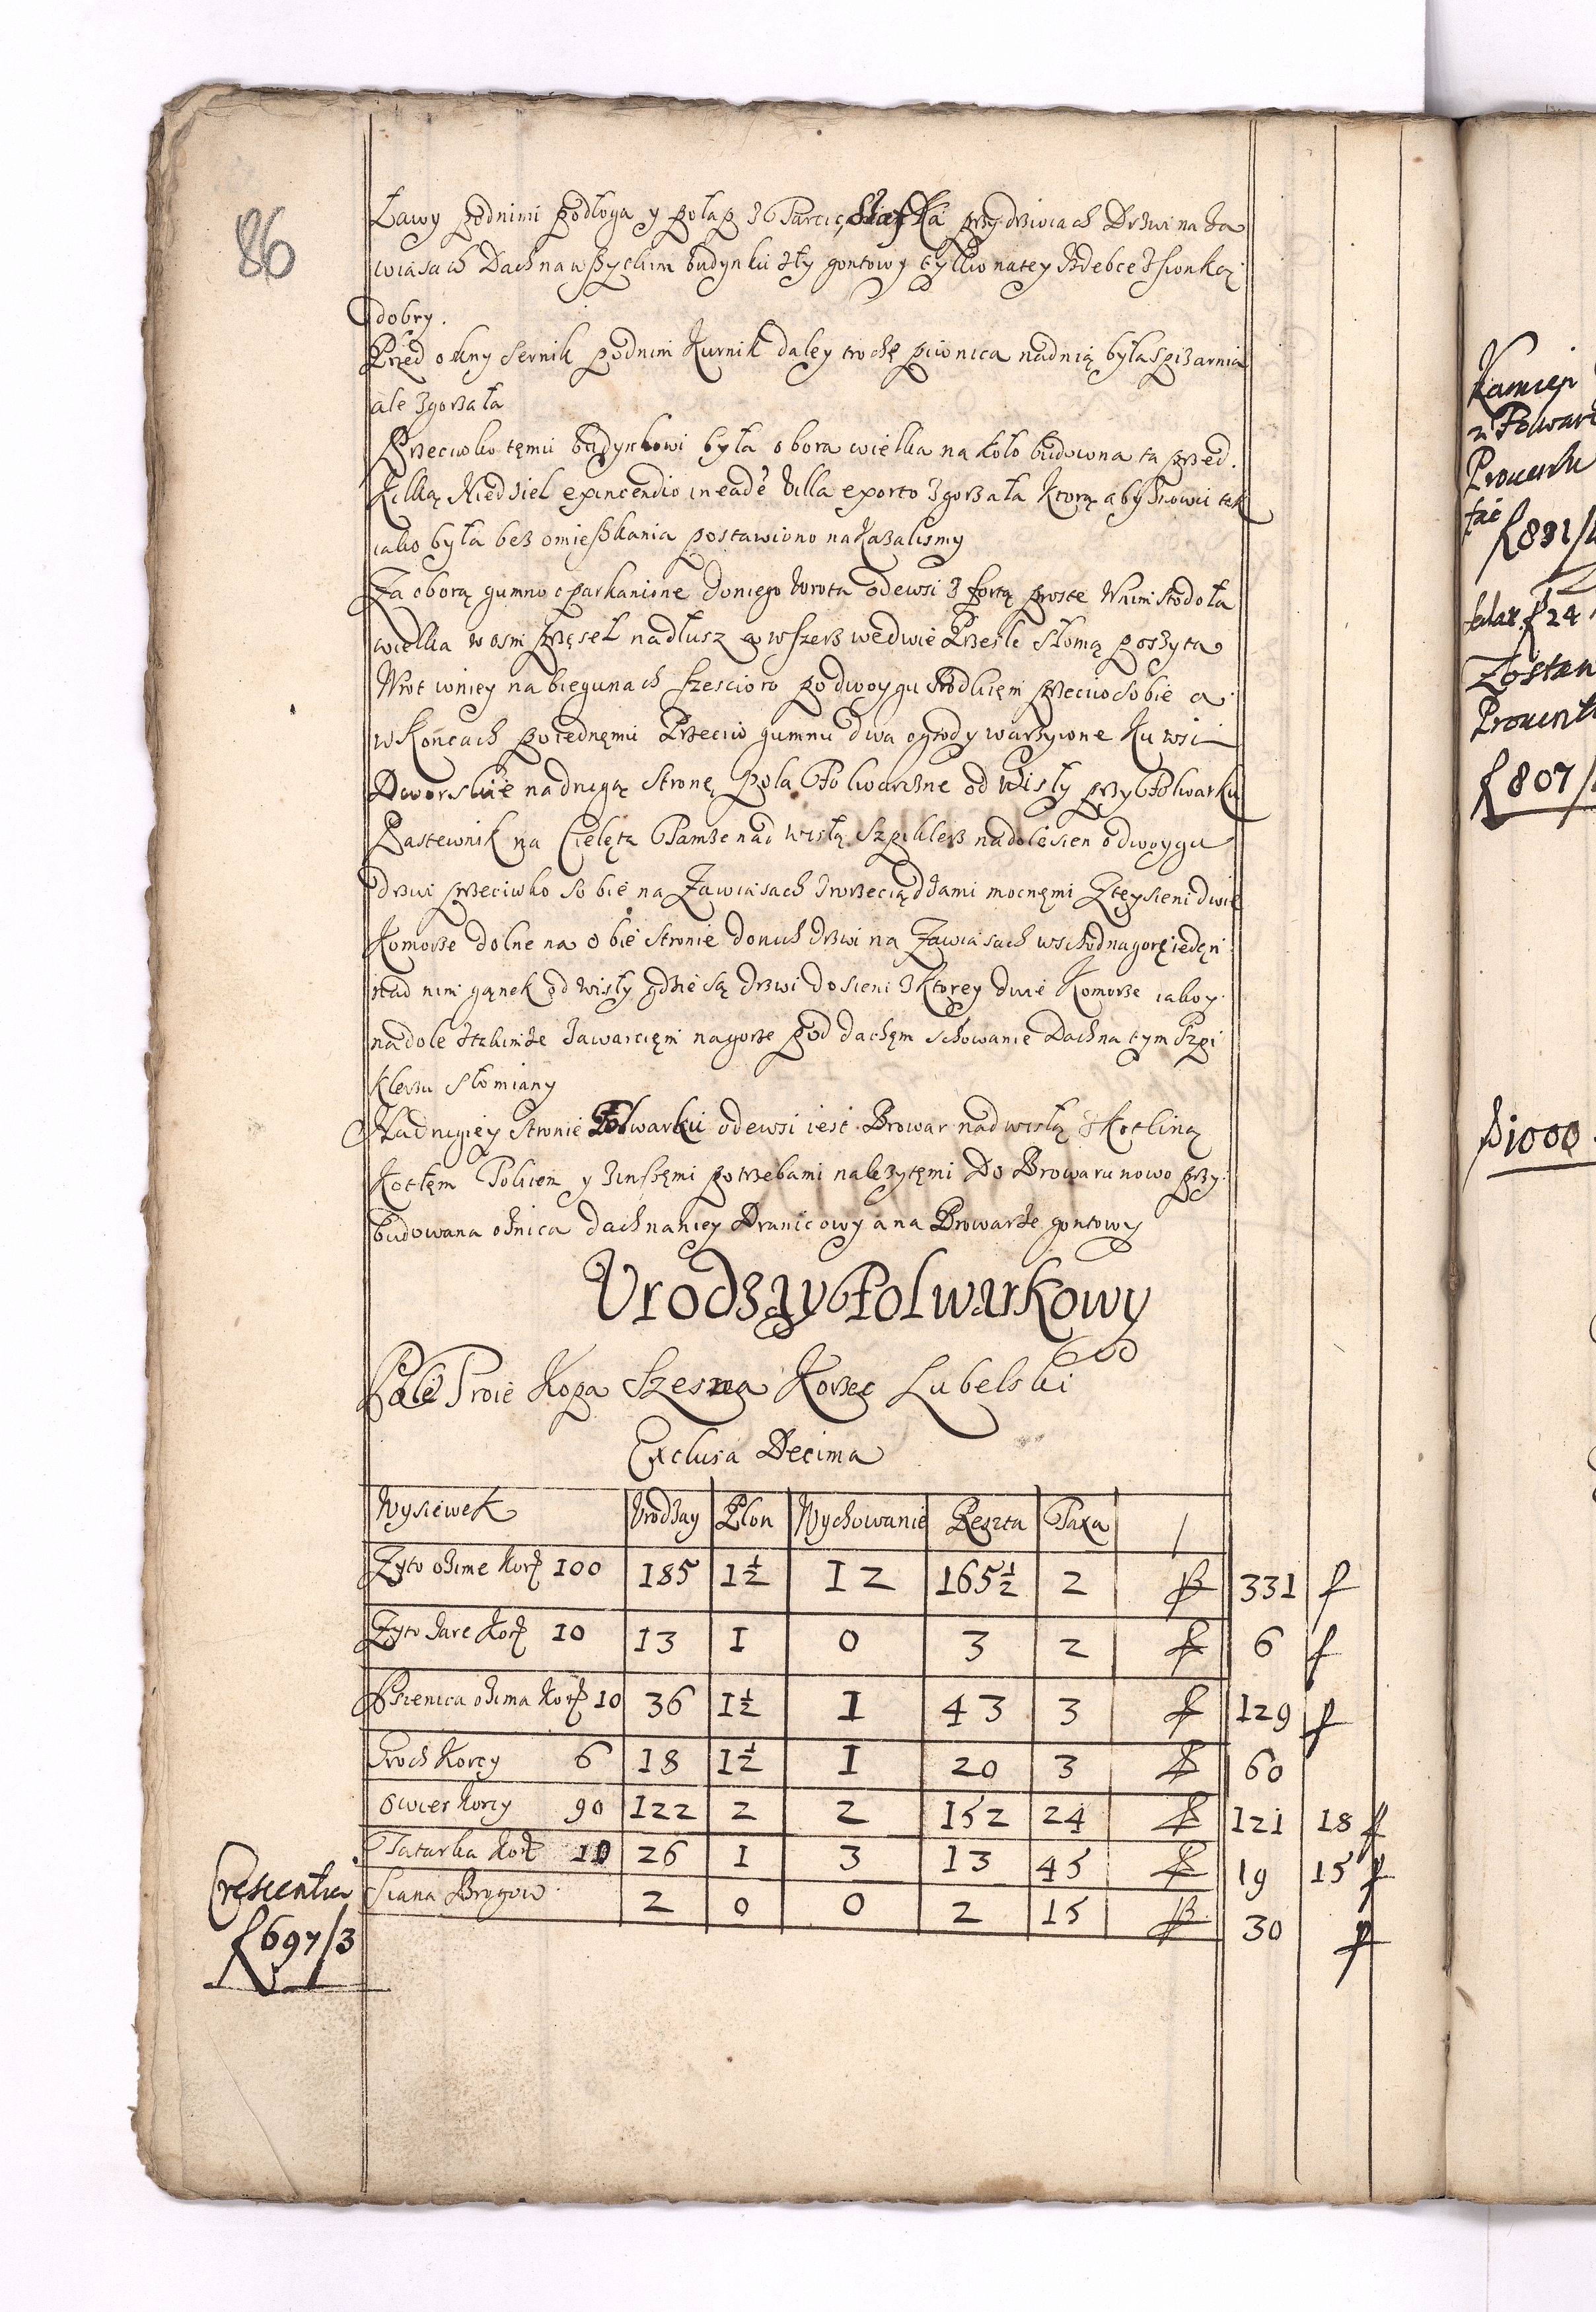 86
Ławy podnimi podłoga y połap z Tarcic, Szafka przy drzwiach Drzwi na Za
wiasach Dach na wszytkim budynku zły gontowy tylko na tey Izdebce z sionką
dobry.
Przed okny Sernik podnim Kurnik daley trochę piwnica nadnią była spizarnia
ale zgorzała
Przeciwko temu budynkowi była obora wielka na koło budowna ta przed
Kilką Niedziel ex incendio in eadē Villa exorto zgorzała Ktorą aby znowu tak
iako była bez omieszkania postawiono nakazalismy
Za oborą gumno oparkanione doniego Wrota odewsi z fortą proste Wnim stodoła
wielka w osm przęseł nadłusz a wszerz wedwie Przęśle słomą poszyta
Wrot wniey na biegunach szescioro podwoygu srodkiem przeciwsobie a
w Końcach poiednęmu Przeciw gumnu dwa ogrody warzywne Ku wsi
Dworskie nadrugą stronę pola Folwarczne od Wisły przy Folwarku
Pastewnik na Cielęta Tamże nad wisłą Szpiklerz nadole sien odwoygu
drzwi przeciwko sobie na Zawiasach z wrzeciądzami mocnęmi Zteysieni dwie
Komorze dolne na obie stronie donich drzwi na Zawiasach wschod nagorę ieden
nad nim gąnek od wisły gdzie są drzwi dosieni z ktorey dwie Komorze iako y
nadole ztakimże zawarcięm nagorze pod dachęm schowanie Dach na tym Szpi
klerzu słomiany
Nadrugiey stronie Folwarku odewsi iest Browar nad wisłą z Kotliną
Kotłem y inszęmi potrzebami należytęmi Do Browaru nowo przy
budowana oźnica dach naniey Dranicowy a na Browarze gontowy
Vrodzay Folwarkowy
Pole Troie Kopa Szesna Korzec Lubelski
Exclusa Decima
Wysiewek Vrodzay Plon Wychowanie Reszta Taxa
Zyto ozime Korz 100 185 1½ 12 165½ 2 331 f
Zyto Jare Korz 10 13 1 0 3 2 f 6 f
Pszenica ozima Korz 10 36 1½ 1 43 3 f 129 f
Groch Korcy 6 18 1½ 1 20 3 60
Owies Korcy 90 122 2 2 152 24 121 18 f
Tatarka Korz 10 26 1 3 13 45 19 15 f
Siana Brogow 2 0 0 2 15 30 f
Crescentia
f 697/3
Kamień
z Folwar
f 831/
f 24
Zostan
f 807/
1000